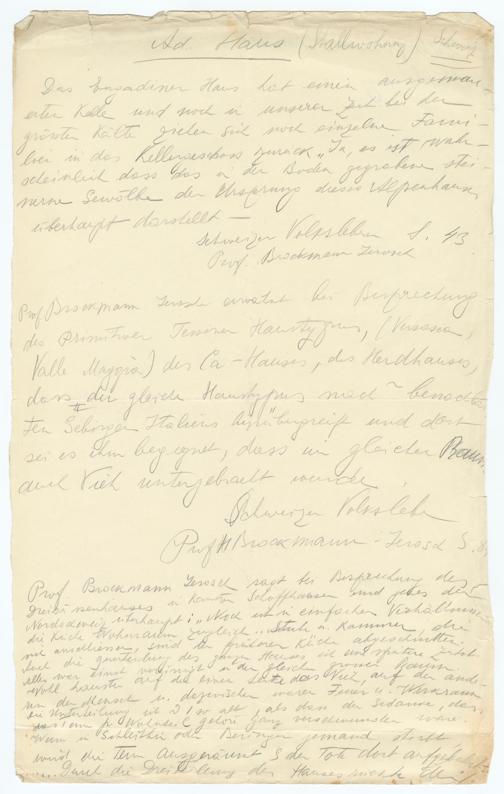 Ad. Haus (Stallwohnung) Schweiz
Das Engadiner Haus hat einen ausgemau-
erten Keller und noch in unserer Zeit bei der
grössten Kälte ziehen sich noch einzelne Fami-
lien in das Kellergeschoss zurück „Ja, es ist wahr-
scheinlich dass das in der Boden gegrabene stei-
nerne Gewölbe den Ursprung dieses Alpenhauses
überhaupt darstellt —
Schweizer Volksleben S. 43
Prof. Brockmann Jerosch
Prof Brockmann Jerosch erwähnt bei Besprechung
des primitiven Tessiner Haustypus, (Versasca,
Valle Maggia) des Ca-Hauses, des Herdhauses,
dass der gleiche Haustypus nach benachbar-
ten Italiens hinübergreift und dort
sei es ihm begegnet, dass im gleichen Raum
auch Vieh untergebracht wurde.
Schweizer Volksleben
Prof H Brockmann-Jerosch S.
Prof. Brockmann Jerosch sagt bei Besprechung des
Dreisässenhauses im Kanton Schaffhausen und jenes der
Nordschweiz überhaupt: „Noch im einfachen Verhältnissen
die Küche Wohnraum zugleich. Stube u. Kammer, die
mit anschliessen, sind der früheren Küche abgeschnitten.
die des ganzen Hauses ist eine spätere Zutat.
alles war einst vereinigt in der gleich grosser Raum.
Wohl hauste auf der einen Seite das Vieh, auf der ande-
ren der Mensch u. dazwischen waren Feuer u.
die Unterteilung ist so alt, als dass der Gedanke, das
ganz verschwunden wäre.
Wenn in Schleitheim oder Beringen jemand stirbt
wird die Tenn ausgeräumt & der Tote dort aufgebahrt
Durch die Dreiteilung des Hauses